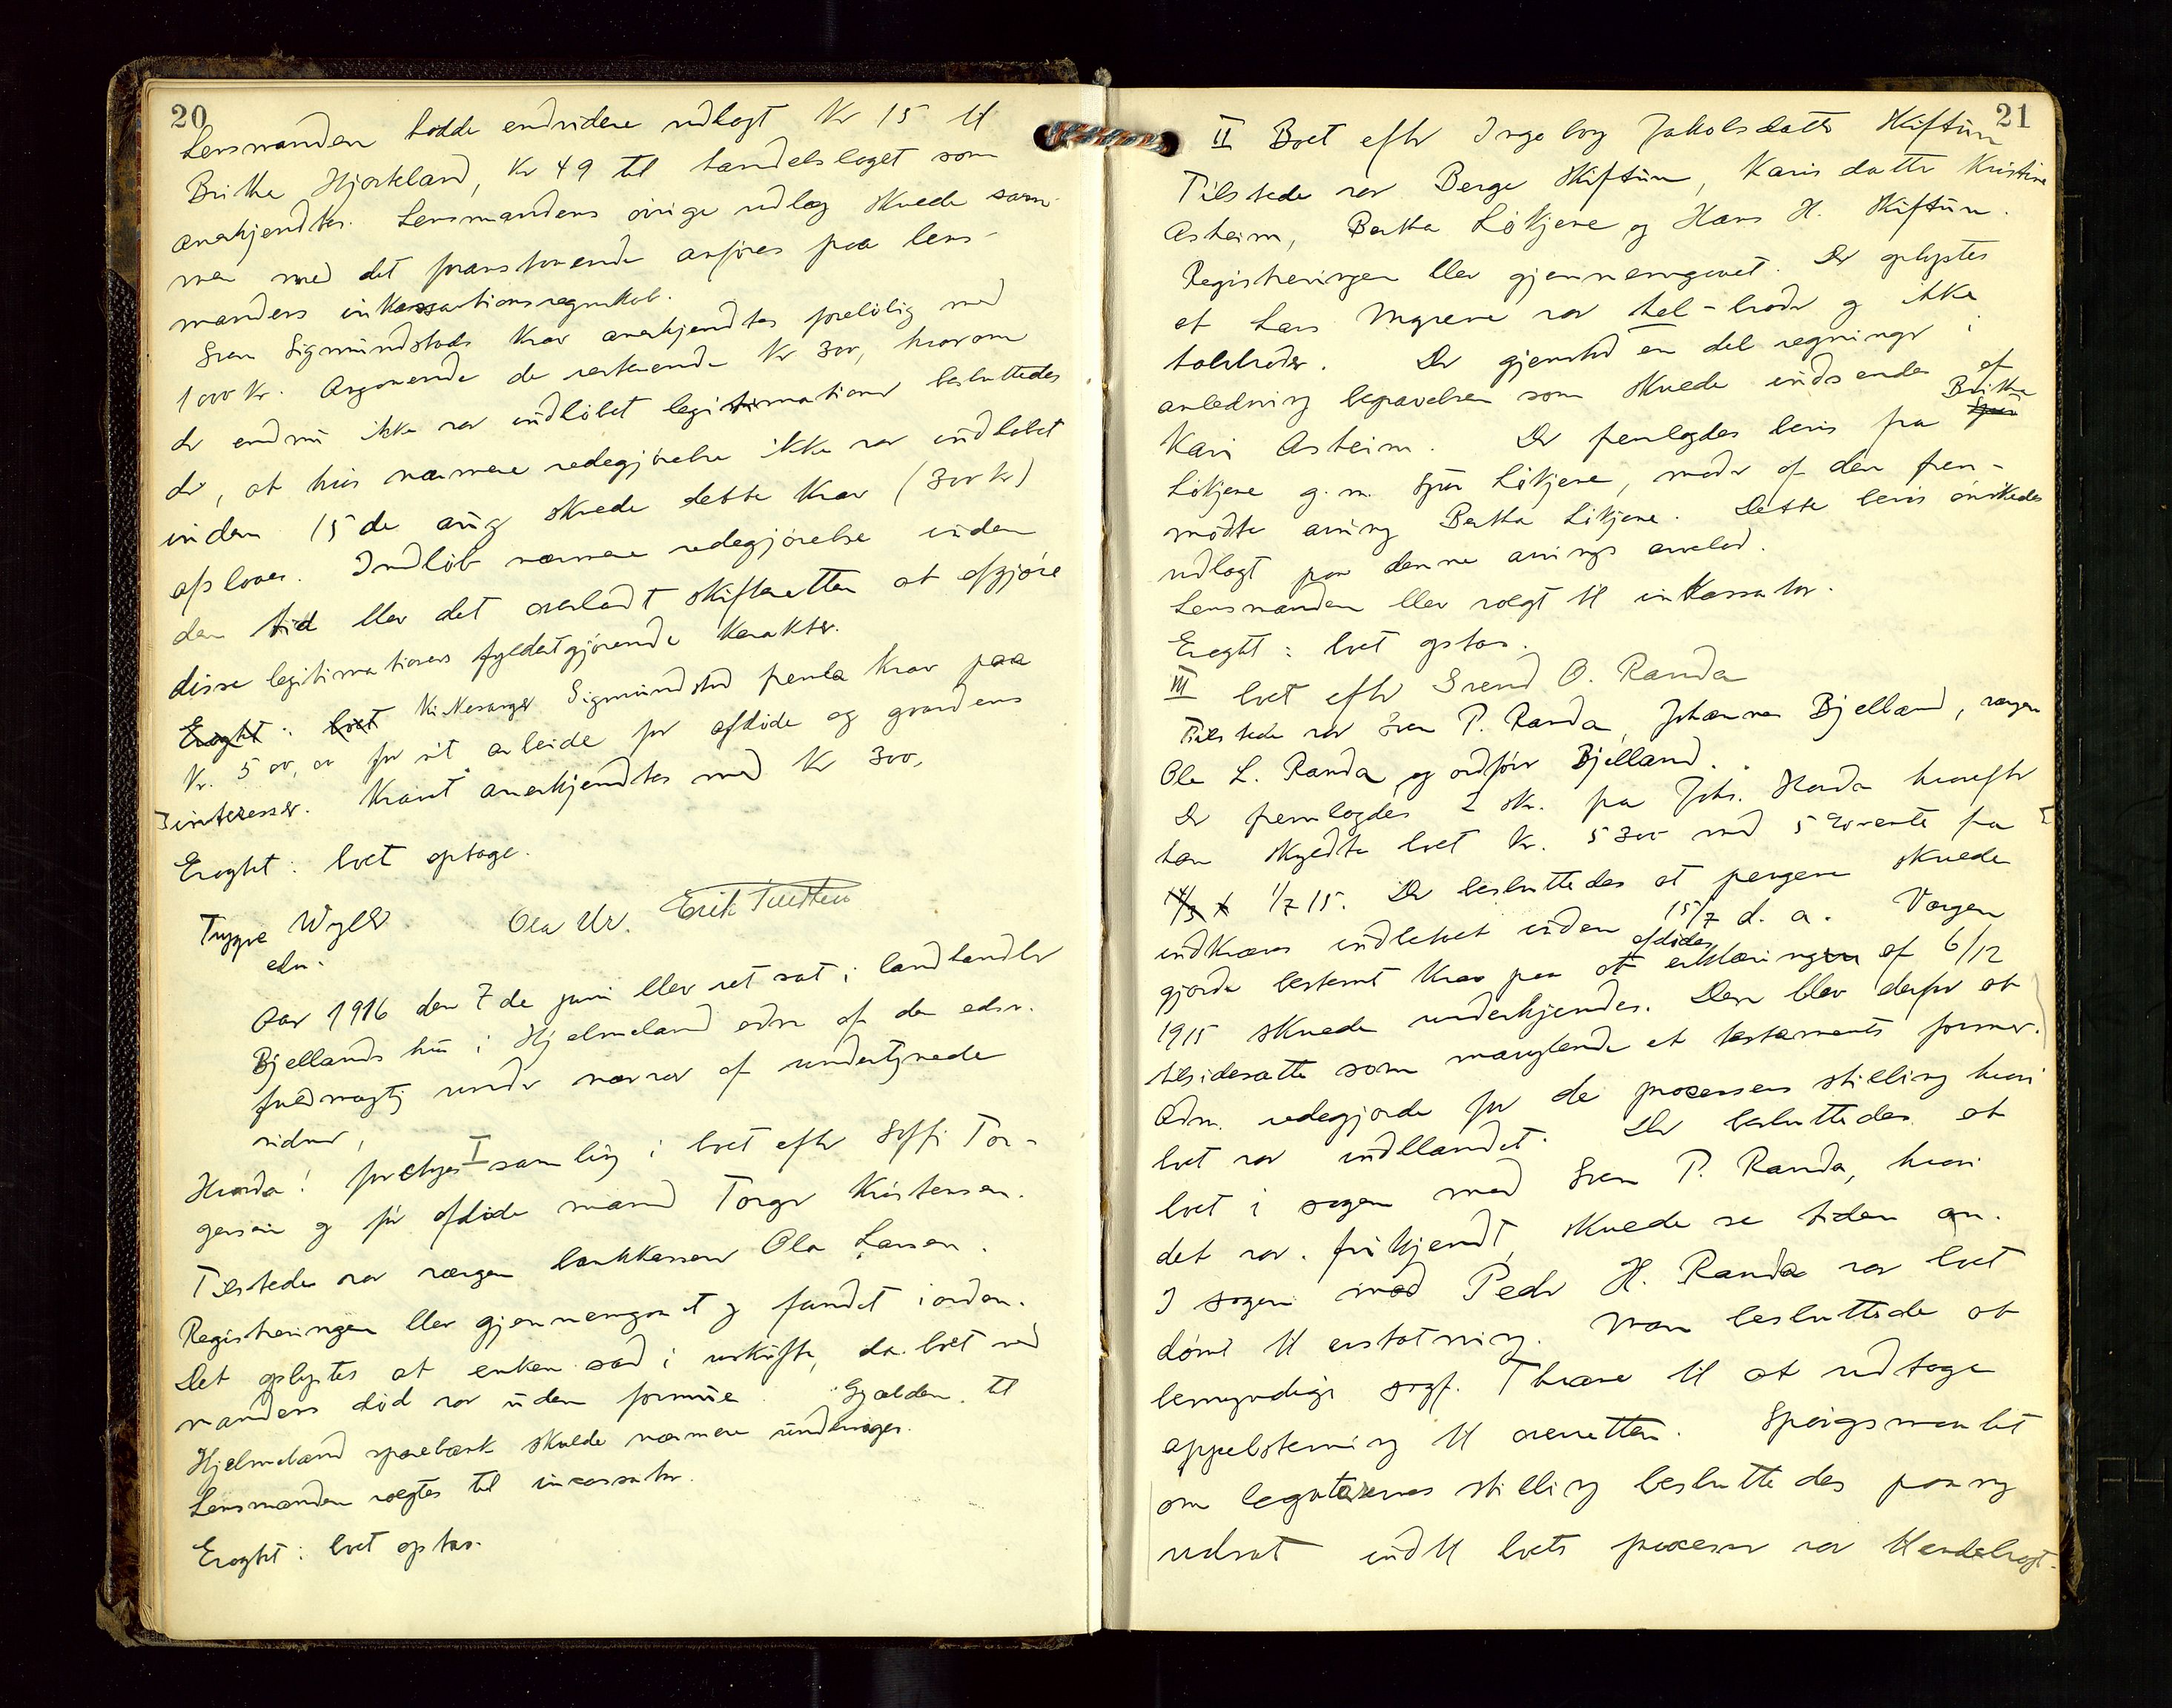 20
Lensmanden hadde endvidere udlagt Kr 15 til
Britha Hjorteland, Kr 49 til handelslaget som
anerkjendtes. Lensmandens øvrige udlæg skulde sam-
men med det foranstaaende anføres paa lens-
mandens inkassationsregnskab.
Sven Sigmundstads krav anerkjendtes foreløbig med
1000 kr. Angaaende de resterende Kr 300, hvorom
der endnu ikke var indløbet legitimationer besluttedes
der, at hvis nærmere redegjørelse ikke var indløbet
inden 15 de aug skulde dette krav (300 kr)
afslaaes. Indløb nærmere redegjørelse inden
den tid blev det overladt skifteretten at afgjøre
disse legitimationers fyldestgjørende karakter.
Eragtet: boet Sigmundstad fremla krav paa
Kr. 500,00 for sit arbeide for afdøde og gaardens
interesser. Kravet anerkjendtes med Kr 300,
Eragtet: boet optage.
Trygve Wyller Ola Ur. Erik Tuedten
edsv.
Aar 1916 den 7de juni blev ret sat i landhandler
Bjellands hus i Hjelmeland adm af den edsv.
fuldmægtig under nærvær af undertegnede
vidner,
Hvorda: foretoges I samling i boet efter Soffi Tor-
gersen og før afdøde mand Torger Kristensen.
Tilstede var værgen bankkasserer Ola Larsen.
Registreringen blev gjennemgaaet og fundet i orden.
Det oplystes at enken sad i uskifte, da boet ved
mandens død var uden formue. Gjælden til
Hjelmeland sparebank skulde nærmere undersøges.
Lensmanden valgtes til incassator.
Eragtet: boet optas.
21
II Boet efter Ingeborg Jakobsdatter Skiftun
Tilstede var Berge Skiftun, Karis datter Kristine
Asheim, Bertha Løkjene og Hans H. Skiftun.
Registreringen blev gjennemgaaet. Der oplystes
at Lars Mgrene var hel-broder og ikke
halvbroder. Der gjenstod en del regninger i
anledning begravelsen som skulde indsendes af
Kari Asheim. Der fremlagdes bevis fra Britha
Løkjene g.m. Sjur Løkjene, moder af den frem-
mødte arving Bertha Løkjene. Dette bevis ønskedes
udlagt paa denne arvings arvelod.
Lensmanden blev valgt til inkassator.
Eragtet: boet optas.
III boet efter Svend O. Randa
Tilstede var Sven P. Randa, Johannes Bjelland, værgen
Ole L. Randa og ordfører Bjelland.
Der fremlagdes 2 skr. fra Johs. Honda hvorefter
han skyldte boet Kr. 5300 med 5 % rente fra
1/7 15. Der besluttedes at pengene skulde
indkræves indbetalt inden 15/7 d. a. Værgen
gjorde bestemt krav paa at afdødes erklæring af 6/12
1915 skulde underkjendes. Den blev derfor at
tilsidesætte som manglende et testaments former.
Adm. redegjorde for de processers stilling hvori
boet var indblandet. Der besluttedes at
boet i sagen mod Sven P. Randa, hvori
det var frikjendt, skulde se tiden an.
I sagen mod Peder H. Randa var boet
dømt til erstatning. Man besluttede at
bemyndige sagf. Thrane til at udtage
appelstevning til overretten. Spørgsmaalet
om legatarernes stilling besluttedes paany
udsat indtil boets processer var tilendebragt.